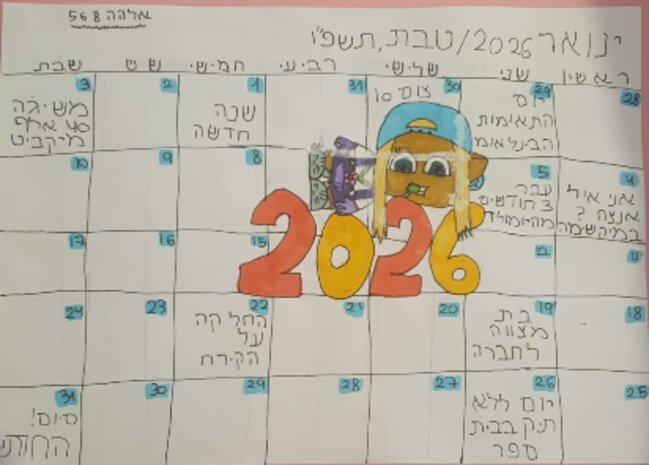 אלהה 568
ינואר 2026/טבת, תשפ"ו
ראשון שני שלישי רביעי חמישי שש שבת
28
29 יום
התאימית
הבינלאומי
30 צום 10
31
1 שנה
חדשה
2
3 משיגה
40 אלף
מיקביט
4 אני איל
אנצה ?
במיקשימה
5 עבר
3 חודשים
מהיומולד
8
9
10
2026
4
2
15
16
17
18
19 בת
מצווה
לחברה
20
21
22 החלקה
על
הקרח
23
24
25
26 יום ללא
תיק בבית
ספר
27
28
29
30
31 סיום!
החותי